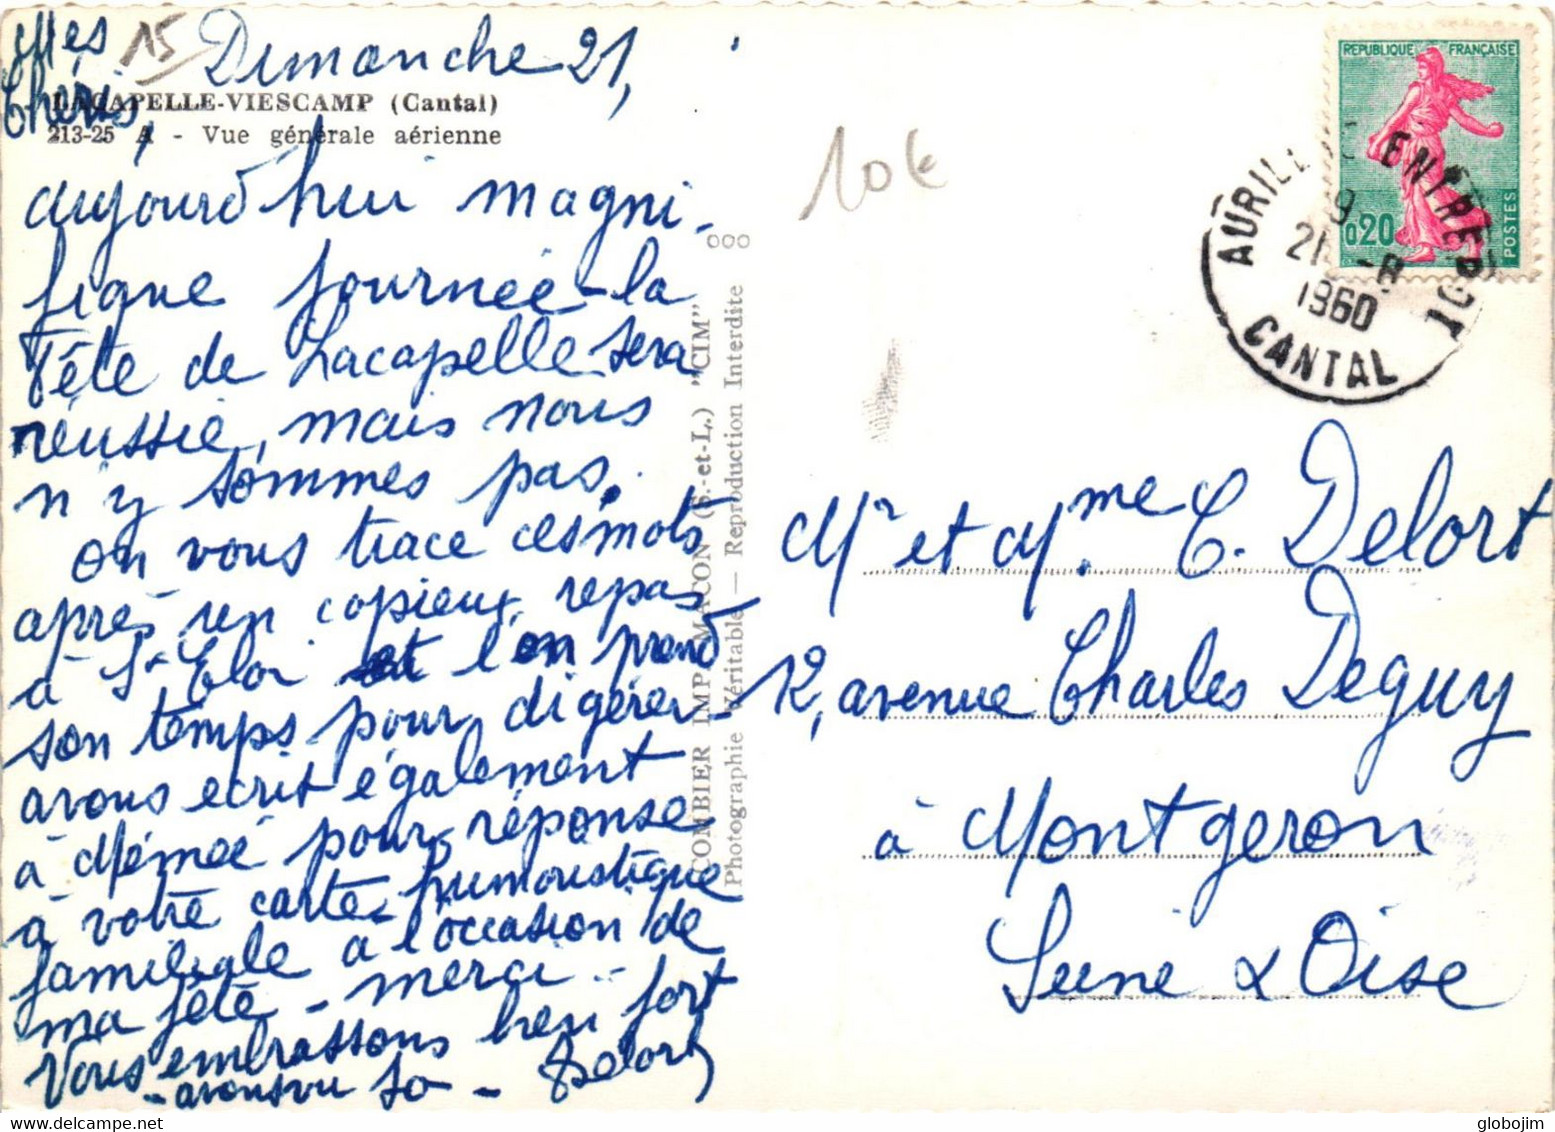 Mes
Chéris,
15
Dimanche 21,
LACAPELLE-VIESCAMP (Cantal)
213-25 A - Vue générale aérienne
aujourd'hui magni-
fique journée - la
Fête de Lacapelle sera
réussie, mais nous
n'y sommes pas.
on vous trace ces mots
après un copieux repas
à St Eloi et l'on prend
son temps pour digérer -
avons ecrit également
à Mémée pour réponse
à votre carte humoristique
familiale à l'occasion de
ma fête - merci -
Vous embrassons bien fort
- avons vu
Delort
COMBIER IMP. MACON (S.-et-L.) "CIM"
Photographie Véritable — Reproduction Interdite
10€
REPUBLIQUE FRANÇAISE
0,20
POSTES
AURILLAC ENTREPOT
19
21 -8
1960
CANTAL
Mr et Mme C. Delort
12, avenue Charles Deguy
à Montgeron
Seine & Oise
globojim